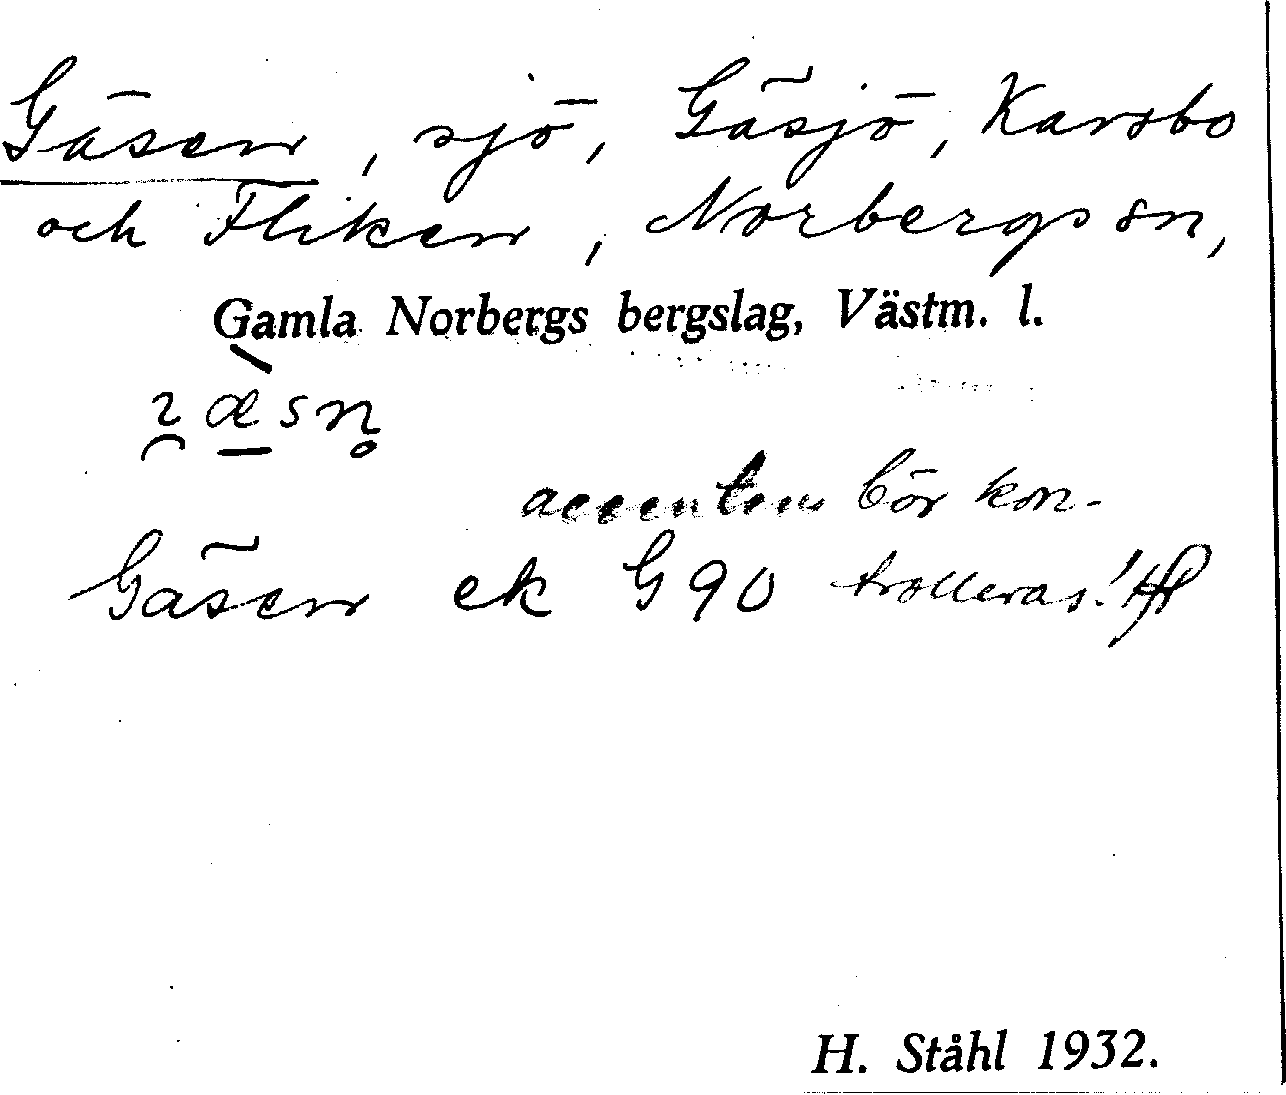 Gäsen, sjö, Gäsjö, Karsbo
och Fliken, Norbergs sn,
Gamla Norbergs bergslag, Västm. l.
accenten bör kon-
Gäsen ek G 90 trolleras!
H. Ståhl 1932.